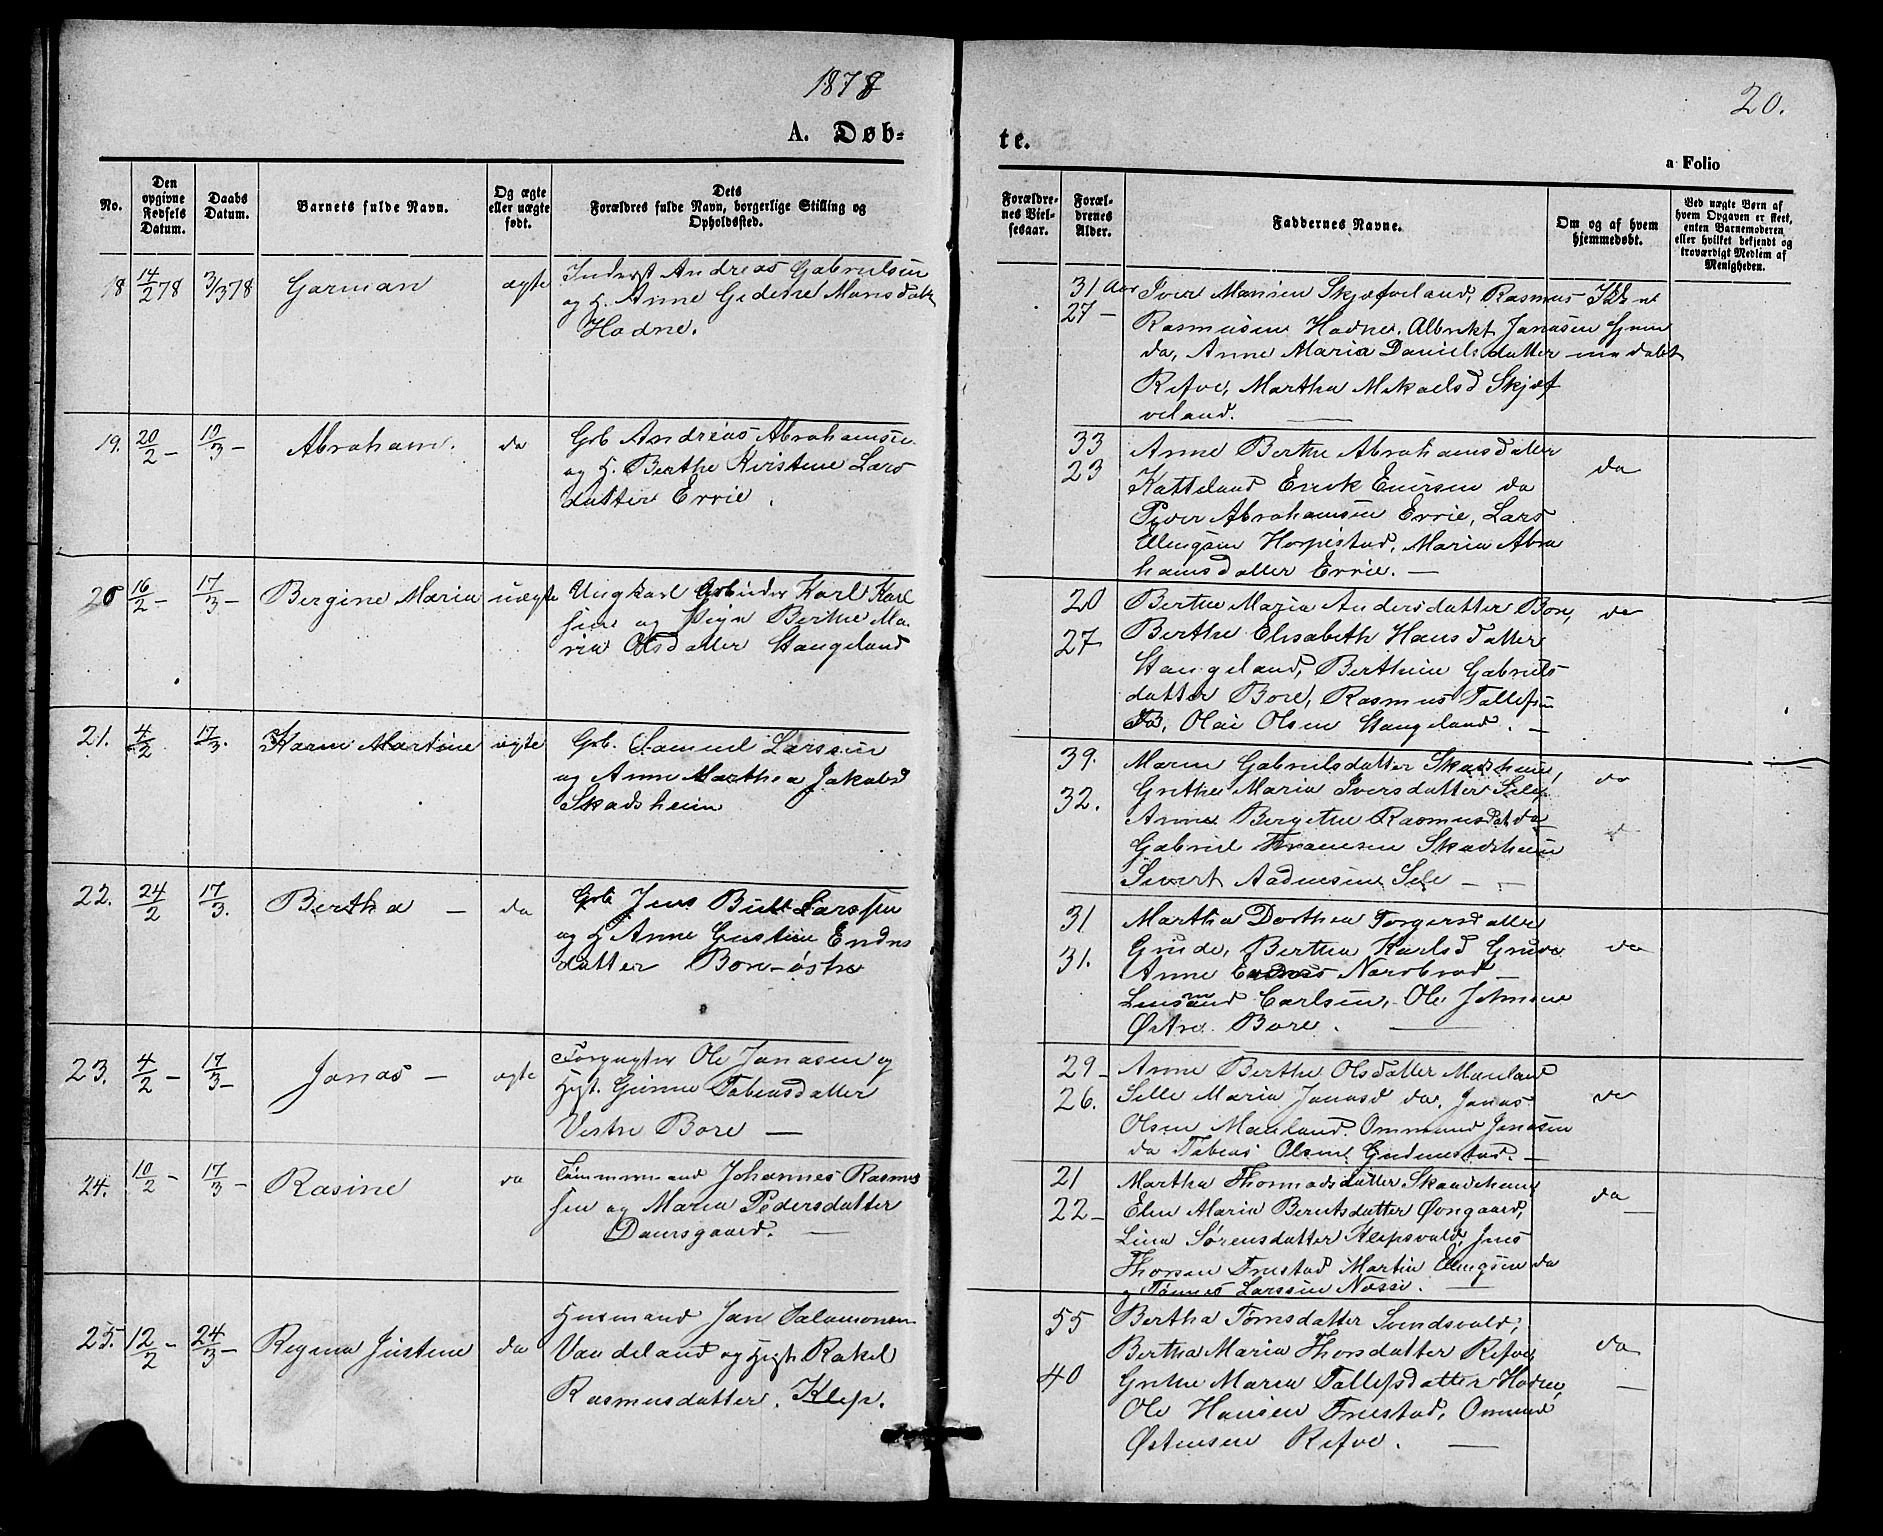 1878
20.
A. Døb-
te.
a Folio
No.
Den opgivne Fødsels Datum.
Daabs Datum.
Barnets fulde Navn.
Og ægte eller uægte født.
Dets
Forældres fulde Navn, borgerlige Stilling og
Opholdssted.
Forældrenes Vielsesaar.
Forældrenes Alder.
Faddernes Navne.
Om og af hvem hjemmedøbt.
Ved uægte Børn af hvem Opgaven er skeet, enten Barnemoderen eller hvilket bekjendt og troværdigt Medlem af Menigheden.
18 14/2 78 3/3 78 Garman ægte
Andreas Gabrielsen
og H. Anne Gedine Monsdatt
Hodne.
31 Aar
27 –
Iver Monsen Skjæfveland, Rasmus
Rasmusen Hodne, Albrikt Jonasen
da, Anne Maria Danielsdatter
Refve, Martha Mikaelsd Skjæf
veland.
Ikke
hjem
medøbt
19. 20/2 – 10/3 – Abraham. do
Grb Andreas Abrahamsen
og H. Berthe Kirstine Lars
datter Errie.
33
23
Anne Berthe Abrahamsdatter
Katteland Enersen da
Abrahamsen Errie, Lars
Ellingsen Horpestad, Maria Abra
hamsdatter Errie. –
da
20 16/2 – 17/3 – Bergine Maria uægte
Ungkarl Arbeider Karl Karl
sen og Pige Berthe Ma-
ria Olsdatter Stangeland
20
27
Bertha Maria Andersdatter Bore,
Berthe Elisabeth Hansdatter
Stangeland, Berthine Gabriels
datter Bore, Rasmus Tallefsen
Olai Olsen Stangeland. –
da
21. 4/2 17/3. Karen Martine ægte
Grb. Samuel Larssen
og Anne Marthea Jakobsd
Skadsheim
39.
32.
Maren Gabrielsdatter Skadsheim,
Grethe Maria Iversdatter Sele
Anne Bergithe Rasmusdat da
Gabriel Fransen Skadsheim
Sivert Aadnesen Sele –
do
22. 24/2 17/3. Bertha – da
Grb Jens Bull Larssen
og H Anne Gustine Endres
datter Bore-østre
31
31.
Martha Dorthea Torgersdatter
Grude, Bertha Karlsd Grude
Anne Nærobrød –
Carlsen, Ole Johnsen
Østre Bore.
da
23. 4/2 – 17/3 – Jonas – ægte
Forpagter Ole Jonasen og
Hst. Gunne Tobiasdatter
Vestre Bore –
29 –
26.
Anne Berthe Olsdatter Mauland
Sille Maria Jonasd da. Jonas
Olsen Mauland. Ommund Jonasen
da Tobias Olsen Gudmestad. –
da
24. 10/2 – 17/3 – Rasine do
Tømmermand Johannes Rasmus
sen og Maria Pedersdatter
21
22 –
Martha Thomasdatter Skadsheim,
Elen Maria Berntsdatter Øxngaard,
Lina Sørensdatter Klepsvald, Jens
Thorsen Friestad Martin Elingsen da
og Tønnes Larssen Næsse. –
da
25. 12/2 – 24/3 – Regina Justine da
Husmand Jan Salamonsen
Vaudeland og Hst. Rakel
Rasmusdatter. Klep.
55
40
Bertha Tørnsdatter Svendsvold,
Bertha Maria Thorsdatter Refve,
Grethe Maria Tallefsdatter Hodne,
Ole Hansen Friestad, Ommund
Østensen Refve.
da